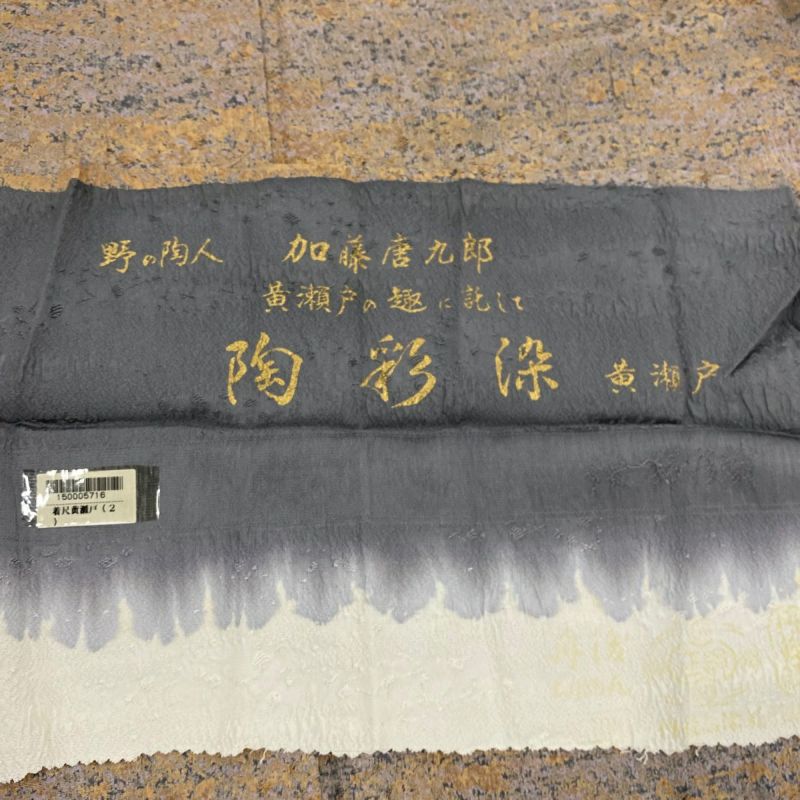 野の陶人 加藤唐九郎
黄瀬戸の趣に託して
陶彩染 黄瀬戸
150005716
着尺黄瀬戸(2
)